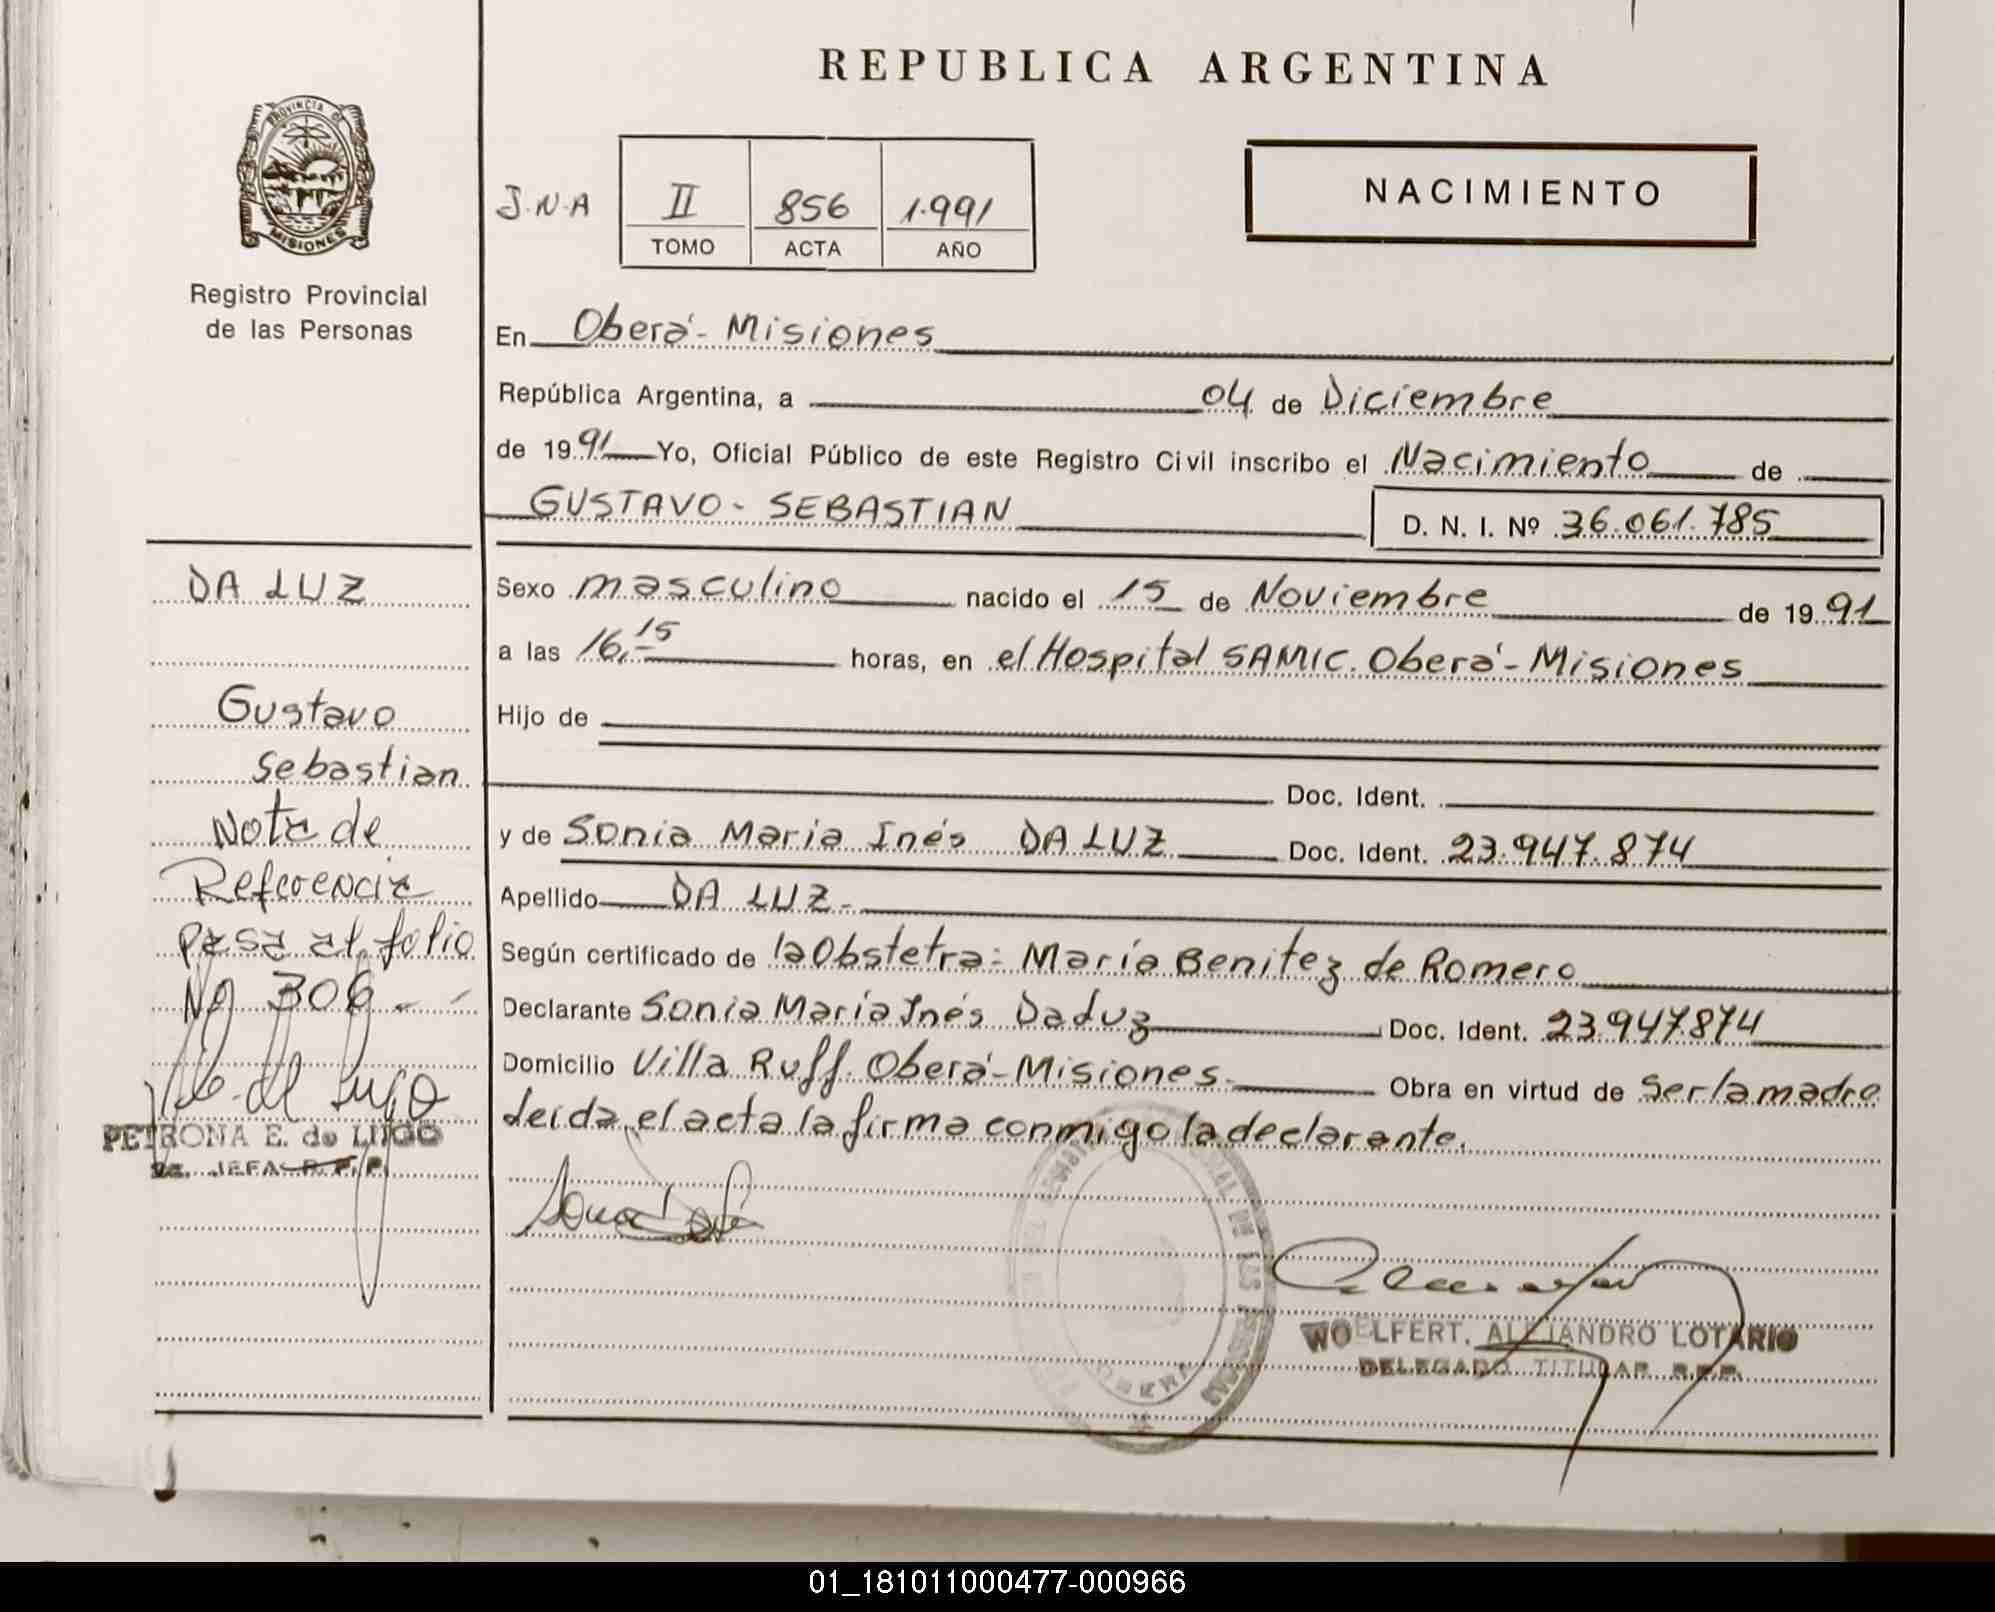 REPUBLICA ARGENTINA
PROVINCIA DE
MISIONES
Registro Provincial
de las Personas
J.N.A
II 856 1.991
TOMO ACTA AÑO
NACIMIENTO
En Oberá - Misiones
República Argentina, a 04 de Diciembre
de 1991 Yo, Oficial Público de este Registro Civil inscribo el Nacimiento de
GUSTAVO - SEBASTIAN D. N. I. Nº 36.061.785
Sexo masculino nacido el 15 de Noviembre de 1991
a las 16,15 horas, en el Hospital SAMIC. Oberá - Misiones
Hijo de
Doc. Ident.
y de Sonia Maria Inés DA LUZ Doc. Ident. 23.947.874
Apellido DA LUZ -
Según certificado de la Obstetra: María Benitez de Romero
Declarante Sonia María Inés Da Luz Doc. Ident. 23.947.874
Domicilio Villa Ruff. Oberá - Misiones - Obra en virtud de Ser la madre
Leida el acta la firma conmigo la declarante.
WOELFERT, ALEJANDRO LOTARIO
DELEGADO TITULAR R.P.P.
DA LUZ
Gustavo
Sebastian
Nota de
Referencia
Pasa al folio
Nº 306 - -
PETRONA E. de LUGO
JEFA R.P.P.
OBERA
01_181011000477-000966